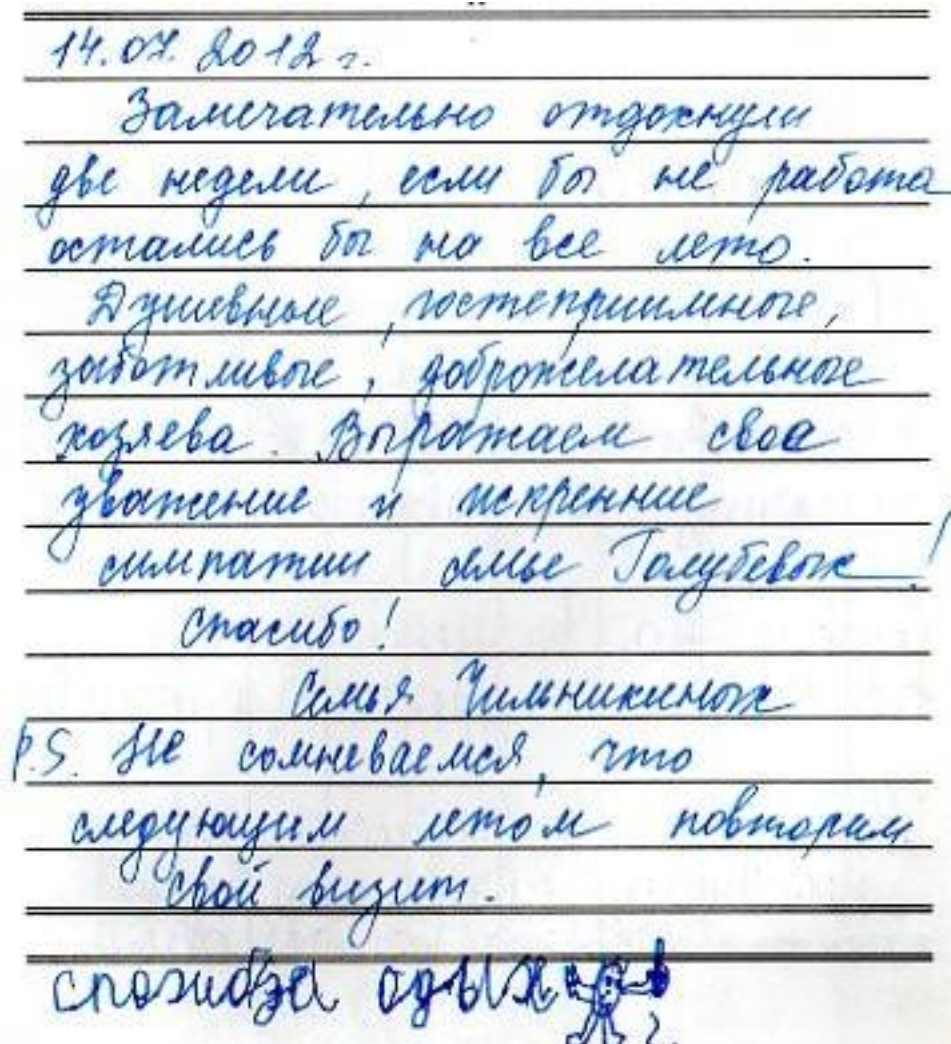 14.07.2012 г.
Замечательно отдохнули
две недели, если бы не работа
остались бы на все лето.
Душевные, гостеприимные,
заботливые, доброжелательные
хозяева. Выражаем свое
уважение и искренние
симпатии семье Голубевых!
Спасибо!
Семья Чильникиных
P.S. Не сомневаемся, что
следующим летом повторим
свой визит.
спозибза одых